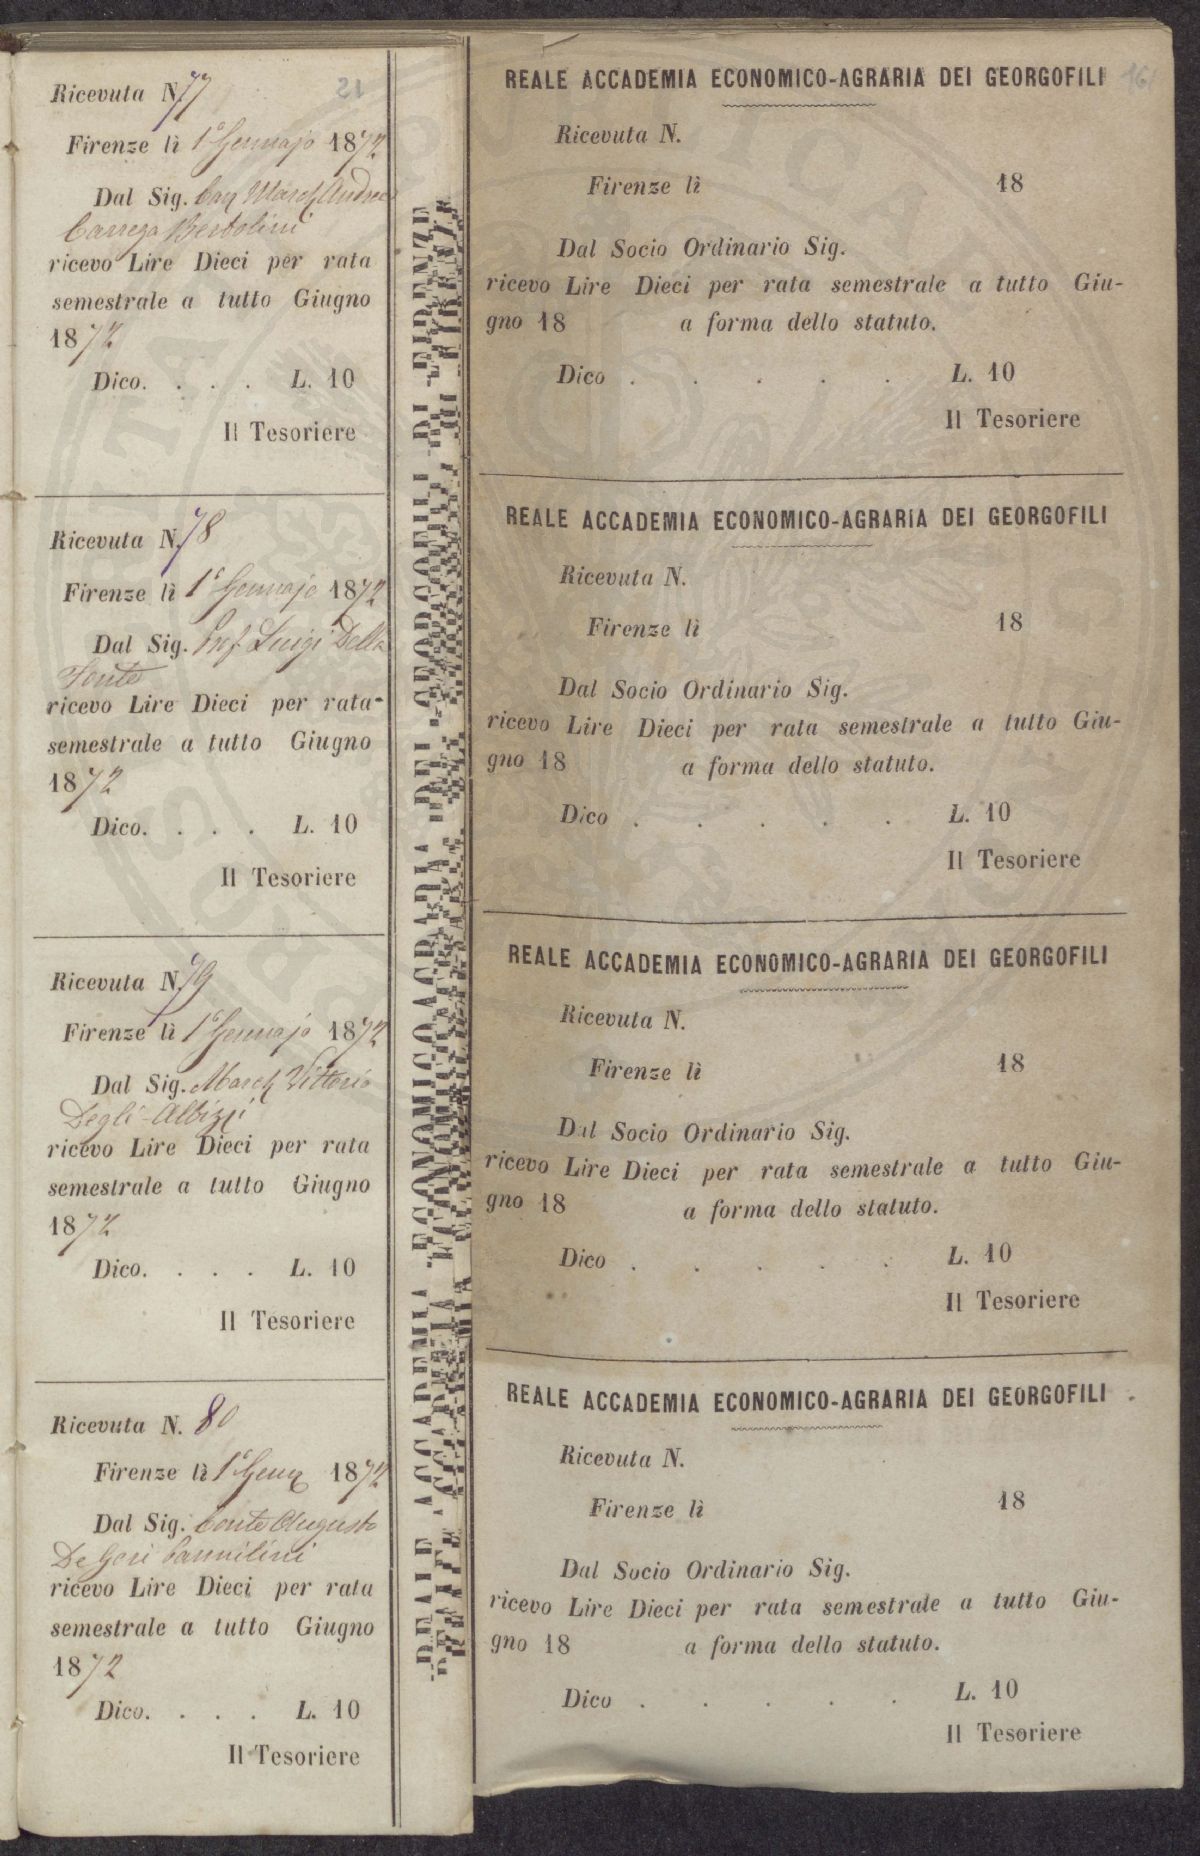 21
Ricevuta N. 77
Firenze lì 1° Gennajo 1872
Dal Sig. Cav March Andrea
Carrega Bertolini
ricevo Lire Dieci per rata
semestrale a tutto Giugno
1872
Dico. . . . L. 10
Il Tesoriere
Ricevuta N. 78
Firenze lì 1° Gennajo 1872
Dal Sig. Prof Luigi Della
Fonte
ricevo Lire Dieci per rata
semestrale a tutto Giugno
1872
Dico. . . . L. 10
Il Tesoriere
Ricevuta N. 79
Firenze lì 1° Gennajo 1872
Dal Sig. March Vittorio
Degli-Albizzi
ricevo Lire Dieci per rata
semestrale a tutto Giugno
1872
Dico. . . . L. 10
Il Tesoriere
Ricevuta N. 80
Firenze lì 1° Genn 1872
Dal Sig. Conte Augusto
De Gori Pannilini
ricevo Lire Dieci per rata
semestrale a tutto Giugno
1872
Dico. . . . L. 10
Il Tesoriere
REALE ACCADEMIA ECONOMICO AGRARIA DEI GEORGOFILI DI FIRENZE
161
REALE ACCADEMIA ECONOMICO-AGRARIA DEI GEORGOFILI
Ricevuta N.
Firenze lì 18
Dal Socio Ordinario Sig.
ricevo Lire Dieci per rata semestrale a tutto Giu-
gno 18 a forma dello statuto.
Dico . . . . . L. 10
Il Tesoriere
REALE ACCADEMIA ECONOMICO-AGRARIA DEI GEORGOFILI
Ricevuta N.
Firenze lì 18
Dal Socio Ordinario Sig.
ricevo Lire Dieci per rata semestrale a tutto Giu-
gno 18 a forma dello statuto.
Dico . . . . . L. 10
Il Tesoriere
REALE ACCADEMIA ECONOMICO-AGRARIA DEI GEORGOFILI
Ricevuta N.
Firenze lì 18
Dal Socio Ordinario Sig.
ricevo Lire Dieci per rata semestrale a tutto Giu-
gno 18 a forma dello statuto.
Dico . . . . . L. 10
Il Tesoriere
REALE ACCADEMIA ECONOMICO-AGRARIA DEI GEORGOFILI
Ricevuta N.
Firenze lì 18
Dal Socio Ordinario Sig.
ricevo Lire Dieci per rata semestrale a tutto Giu-
gno 18 a forma dello statuto.
Dico . . . . . L. 10
Il Tesoriere